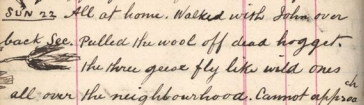 SUN 22 All at home. Walked with John over
back Sec. Pulled the wool off dead hogget.
the three geese fly like wild ones
all over the neighbourhood. Cannot approach